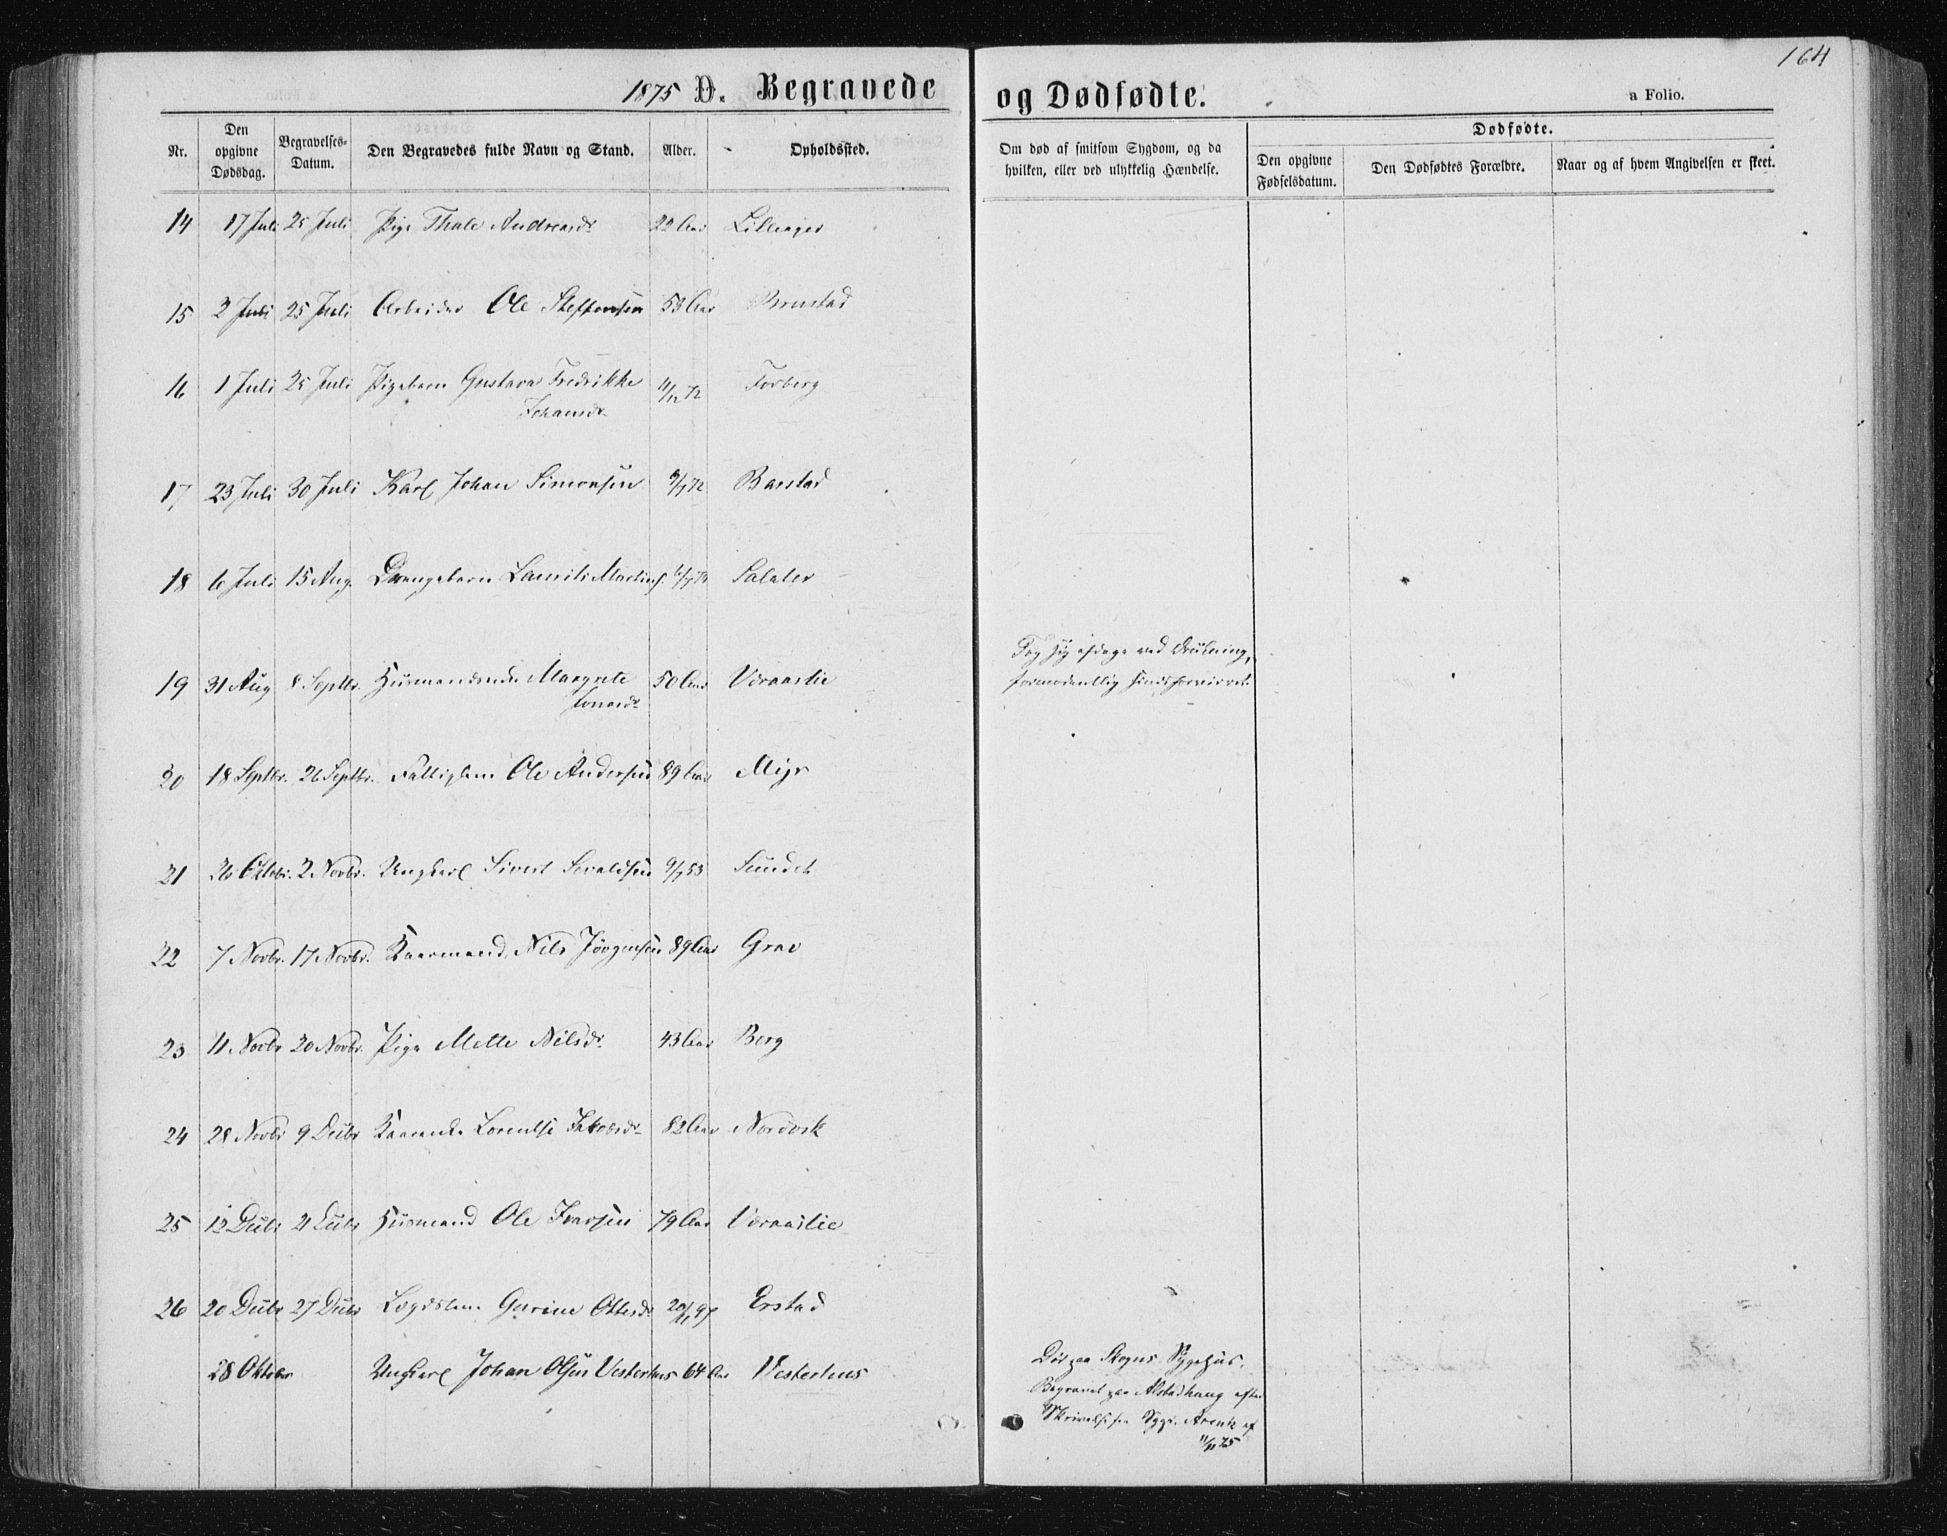 164
1875 D. Begravede og Dødfødte.
a Folio.
Nr.
Den opgivne Dødsdag.
Begravelses-Datum.
Den Begravedes fulde Navn og Stand.
Alder.
Opholdssted.
Om død af smitsom Sygdom, og da hvilken, eller ved ulykkelig Hændelse.
Dødfødte.
Den opgivne Fødselsdatum.
Den Dødfødtes Forældre.
Naar og af hvem Angivelsen er skeet.
14 17 Juli 25 Juli Pige Thale Andreasdr 22 Aar
15 2 Juli 25 Juli Arbeider Ole Steffensen 58 Aar
16 1 Juli 25 Juli Pigebarn Gustava Fredrikke 11/12 72 Forberg
Johansdr
17 23 Juli 30 Juli Karl Johan Simonsen 72 Barstad
18 6 Juli 15 Aug. Drengebarn Laurits Martins. Salater
19 31 Aug 8 Septbr. Husmandsenke Margrete 50 Aar Væraaslie
Jonasdr
Tog sig afdage ved Drukning,
formodentlig sindsforvirret.
20 18 Septbr. 26 Septbr. Fattiglem Ole Andersen 89 Aar Myr
21 26 Oktobr. 2 Novbr. Ungkarl Sivert Sevaldsen 9/7 53 Sundet
22 7 Novbr. 17 Novbr. Kaarmand Nils Jørgensen 89 Aar Grav
23 11 Novbr 20 Novbr. Pige Mette Nilsdr. 43 Aar Berg
24 28 Novbr 9 Decbr Kaarenke Lorentse Jakobsdr 82 Aar Nordvik
25 12 Decbr 21 Decbr Husmand Ole Iversen 79 Aar Væraaslie
26 20 Decbr 27 Decbr Lægdslem Gurine Ottesdr 20/11 97 Erstad
28 Oktober Ungkarl Johan Olsen Vesterhus 64 Aar Vesterhus
Død paa Skogns Sygehus.
Begravet paa Alstadhaug efter
Skrivelse fra Sgpr. Arentz af
11/11 75